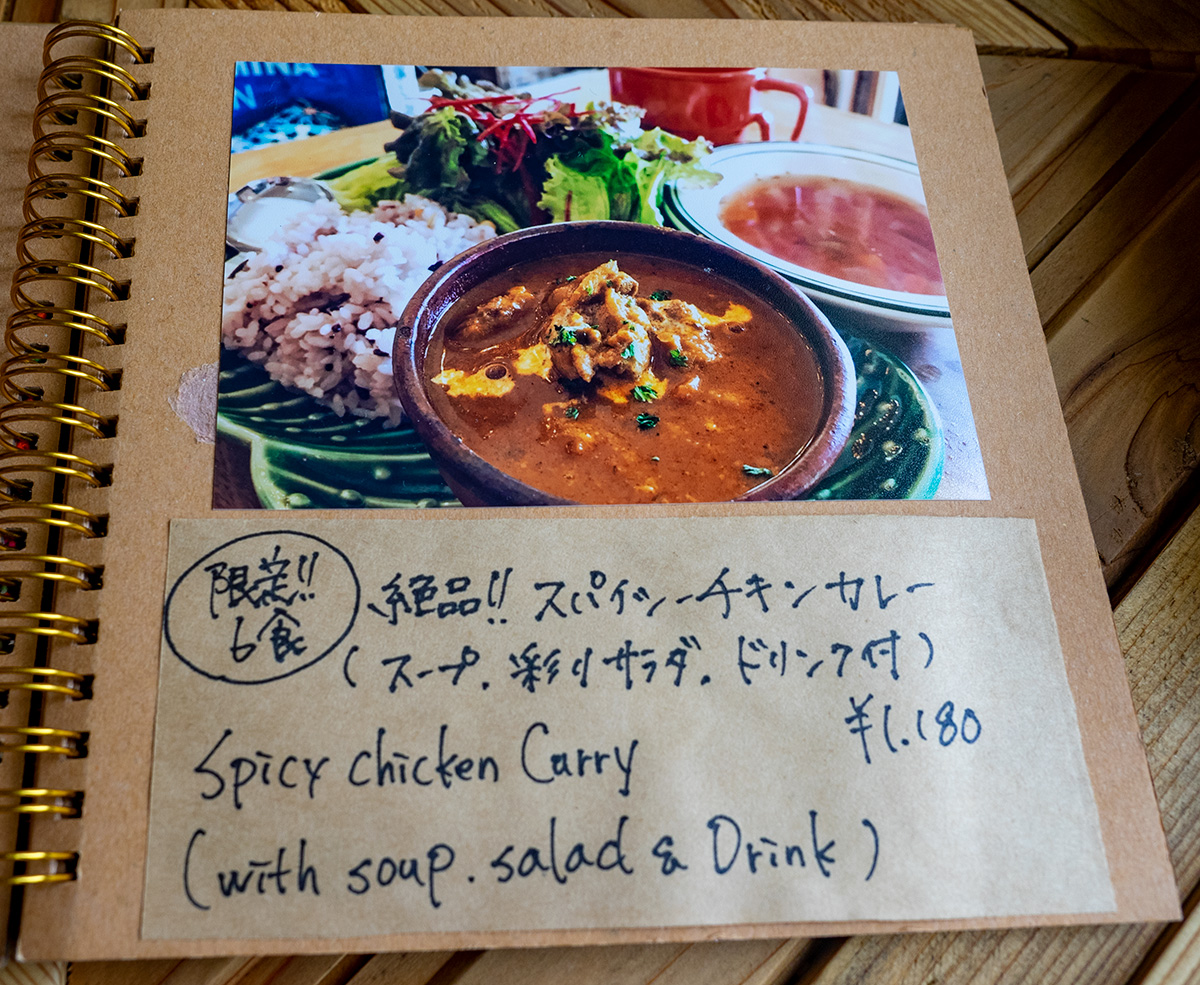 限定!!
6食
絶品!! スパイシーチキンカレー
(スープ.彩りサラダ.ドリンク付)
¥1.180
Spicy chicken Curry
(with soup. salad & Drink)